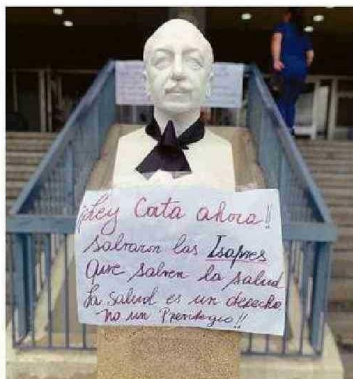 ¡Ley Cata ahora!!
Salvaron las Isapres
Que salven la salud
La salud es un derecho
no un Previlegio!!